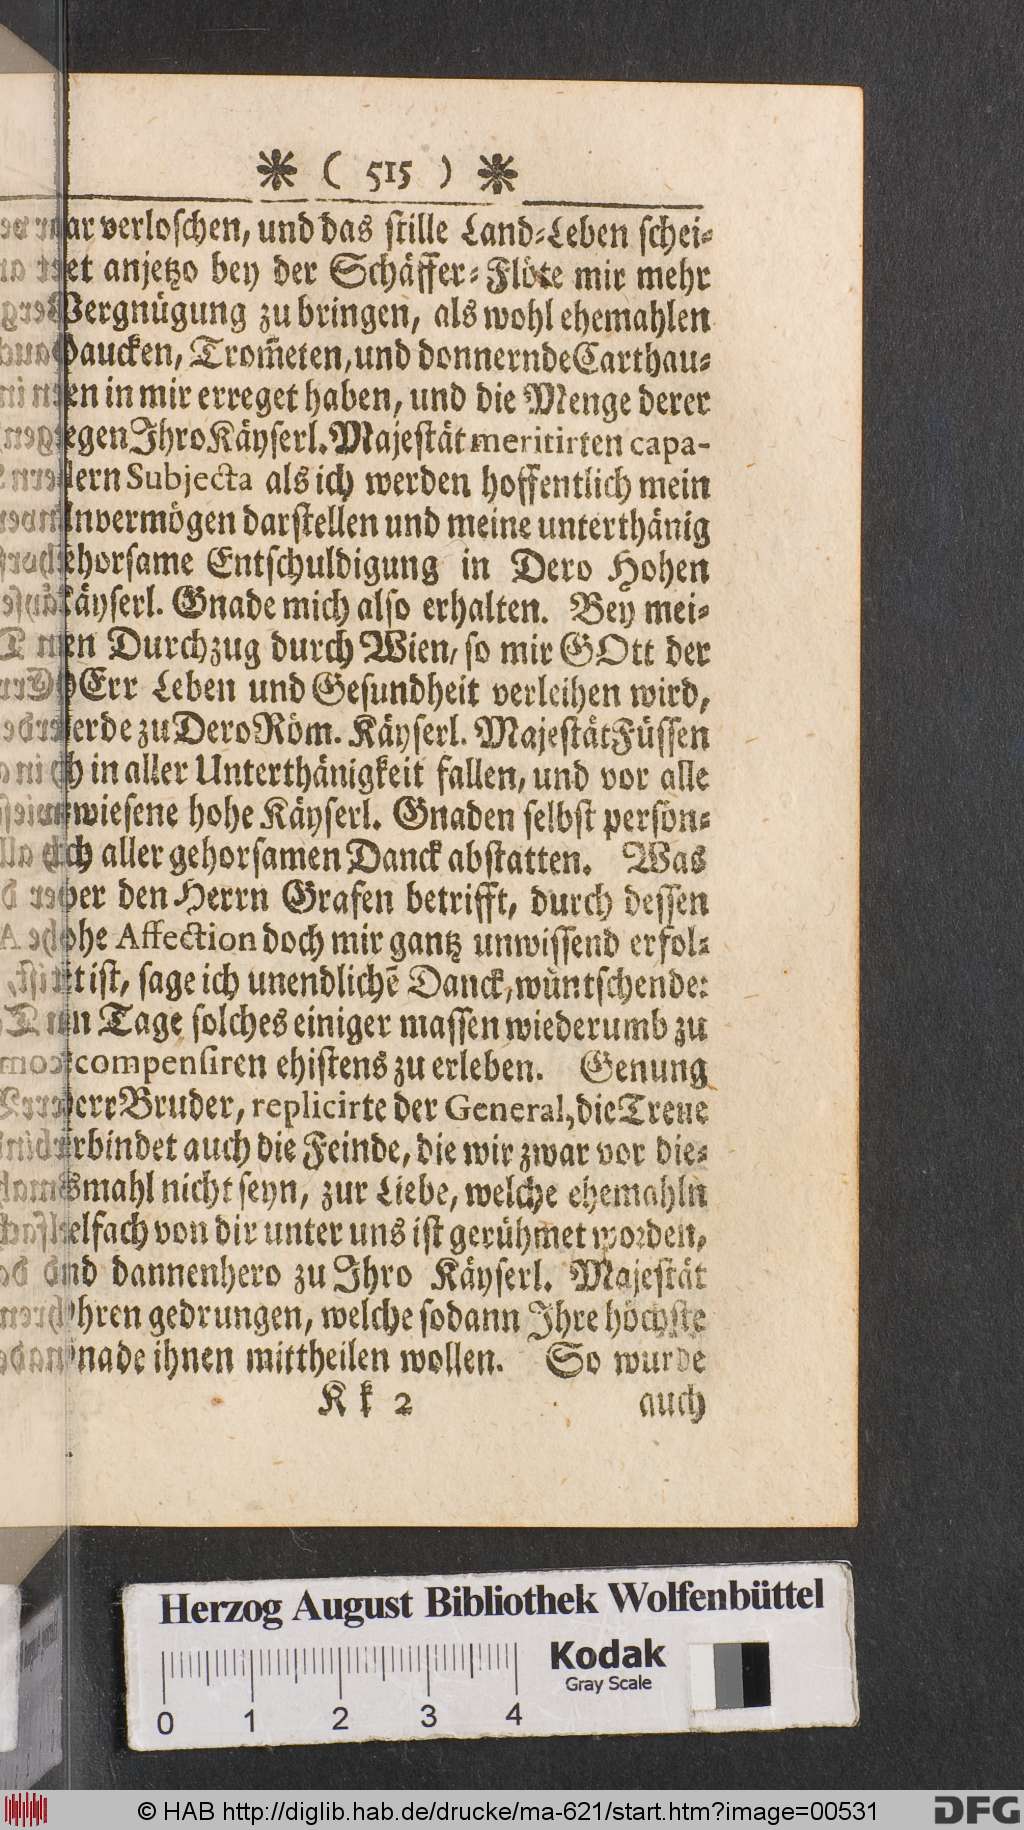 * ( 515 ) *
ar verloschen, und das stille Land-Leben schei-
et anjetzo bey der Schäffer-Flöte mir mehr
Vergnügung zu bringen, als wohl ehemahlen
Paucken, Trom̃eten, und donnernde Carthau-
en in mir erreget haben, und die Menge derer
egen Ihro Käyserl. Majestät meritirten capa-
lern Subjecta als ich werden hoffentlich mein
Unvermögen darstellen und meine unterthänig
ehorsame Entschuldigung in Dero Hohen
Käyserl. Gnade mich also erhalten. Bey mei-
en Durchzug durch Wien, so mir GOtt der
HErr Leben und Gesundheit verleihen wird,
erde zu Dero Röm. Käyserl. Majestät Füssen
ch in aller Unterthänigkeit fallen, und vor alle
wiesene hohe Käyserl. Gnaden selbst persön-
ch aller gehorsamen Danck abstatten. Was
ber den Herrn Grafen betrifft, durch dessen
ohe Affection doch mir gantz unwissend erfol-
t ist, sage ich unendlichē Danck, wüntschende:
n Tage solches einiger massen wiederumb zu
compensiren ehistens zu erleben. Genung
Herr Bruder, replicirte der General, die Treue
rbindet auch die Feinde, die wir zwar vor die-
smahl nicht seyn, zur Liebe, welche ehemahln
elfach von dir unter uns ist gerühmet worden,
nd dannenhero zu Ihro Käyserl. Majestät
Ohren gedrungen, welche sodann Ihre höchste
nade ihnen mittheilen wollen. So wurde
K k 2 auch
Herzog August Bibliothek Wolfenbüttel
Kodak
Gray Scale
0 1 2 3 4
© HAB http://diglib.hab.de/drucke/ma-621/start.htm?image=00531
DFG